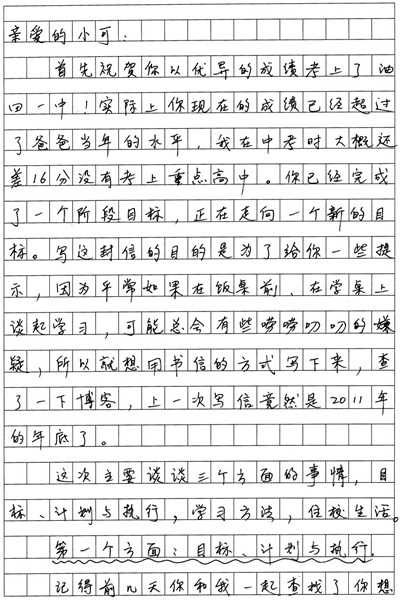 亲爱的小可：
首先祝贺你以优异的成绩考上了油
田一中！实际上你现在的成绩已经超过
了爸爸当年的水平，我在中考时大概还
差16分没有考上重点高中。你已经完成
了一个阶段目标，正在走向一个新的目
标。写这封信的目的是为了给你一些提
示，因为平常如果在饭桌前、在学桌上
谈起学习，可能总会有些唠唠叨叨的嫌
疑，所以就想用书信的方式写下来，查
了一下博客，上一次写信竟然是2011年
的年底了。
这次主要谈谈三个方面的事情，目
标、计划与执行，学习方法，住校生活。
第一个方面：目标、计划与执行.
记得前几天你和我一起查找了你想